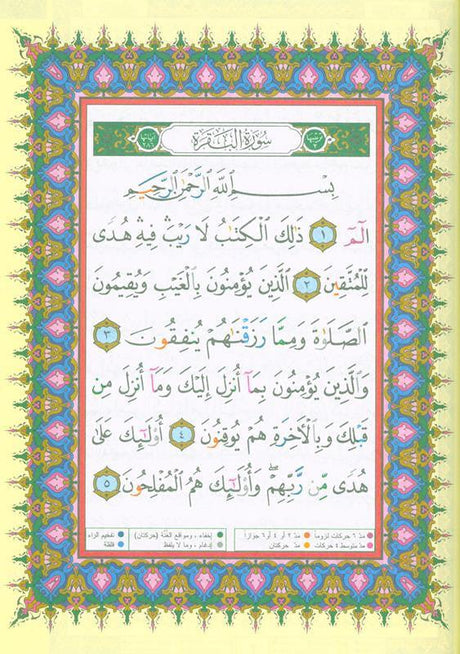 سُورَةُ البَقَرَةِ
آياتها ٢٨٦
بِسْمِ ٱللَّهِ ٱلرَّحْمَٰنِ ٱلرَّحِيمِ
الٓمٓ ١ ذَٰلِكَ ٱلْكِتَٰبُ لَا رَيْبَ ۛ فِيهِ ۛ هُدًى
لِّلْمُتَّقِينَ ٢ ٱلَّذِينَ يُؤْمِنُونَ بِٱلْغَيْبِ وَيُقِيمُونَ
ٱلصَّلَوٰةَ وَمِمَّا رَزَقْنَٰهُمْ يُنفِقُونَ ٣
وَٱلَّذِينَ يُؤْمِنُونَ بِمَآ أُنزِلَ إِلَيْكَ وَمَآ أُنزِلَ مِن
قَبْلِكَ وَبِٱلْأَخِرَةِ هُمْ يُوقِنُونَ ٤ أُو۟لَٰٓئِكَ عَلَىٰ
هُدًى مِّن رَّبِّهِمْ ۖ وَأُو۟لَٰٓئِكَ هُمُ ٱلْمُفْلِحُونَ ٥
مدّ ٦ حركات لزوماً مدّ ٢ أو ٤ أو ٦ جوازاً
مدّ متوسط ٤ حركات مدّ حركتان
إخفاء، ومواقع الغُنَّة (حركتان) تفخيم الراء
إدغام، وما لا يلفظ قلقلة